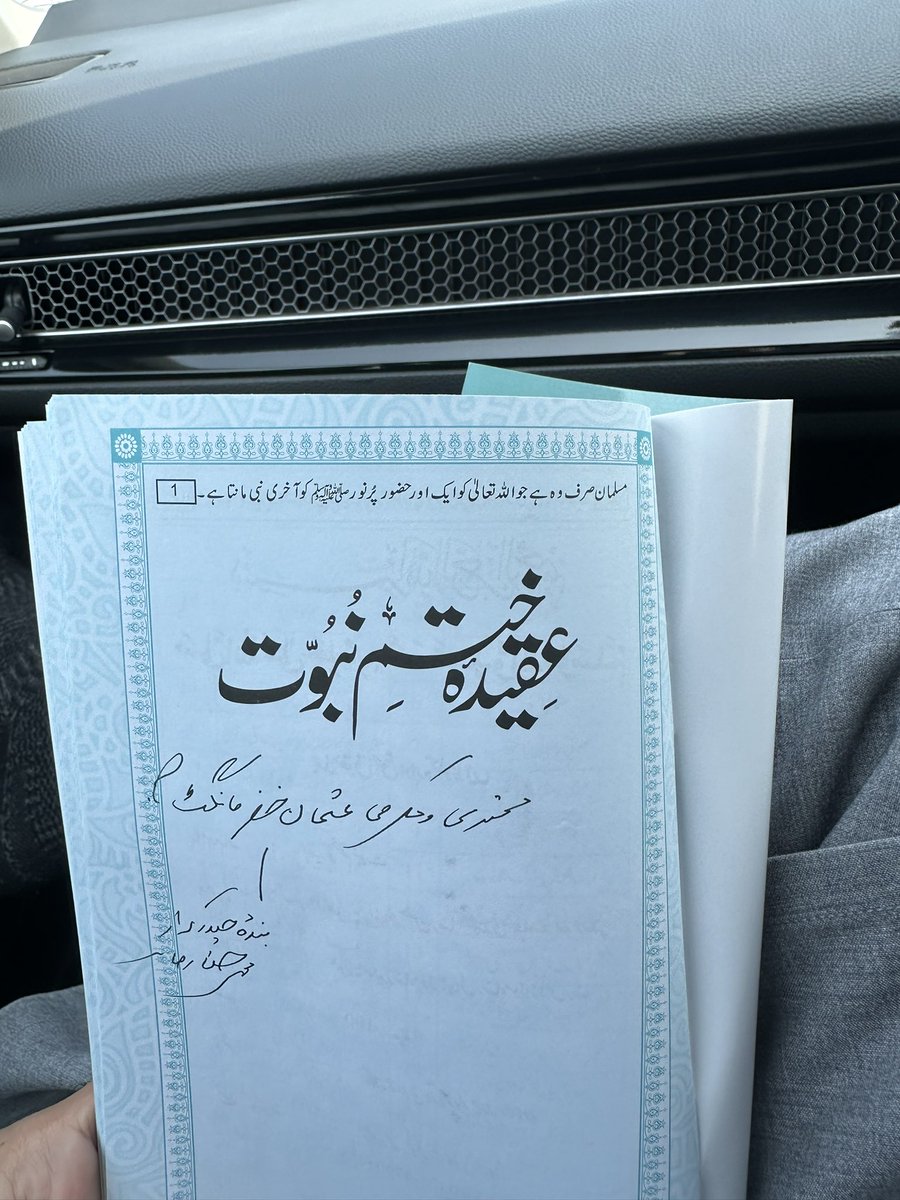 مسلمان صرف وہ ہے جو اللہ تعالیٰ کو ایک اور حضور پُرنور ﷺ کو آخری نبی مانتا ہے۔ 1
عِقیدۂ ختمِ نُبوّت
محترمی و مکرمی عثمان ظفر مانگٹ
بندۂ حیدر کرار